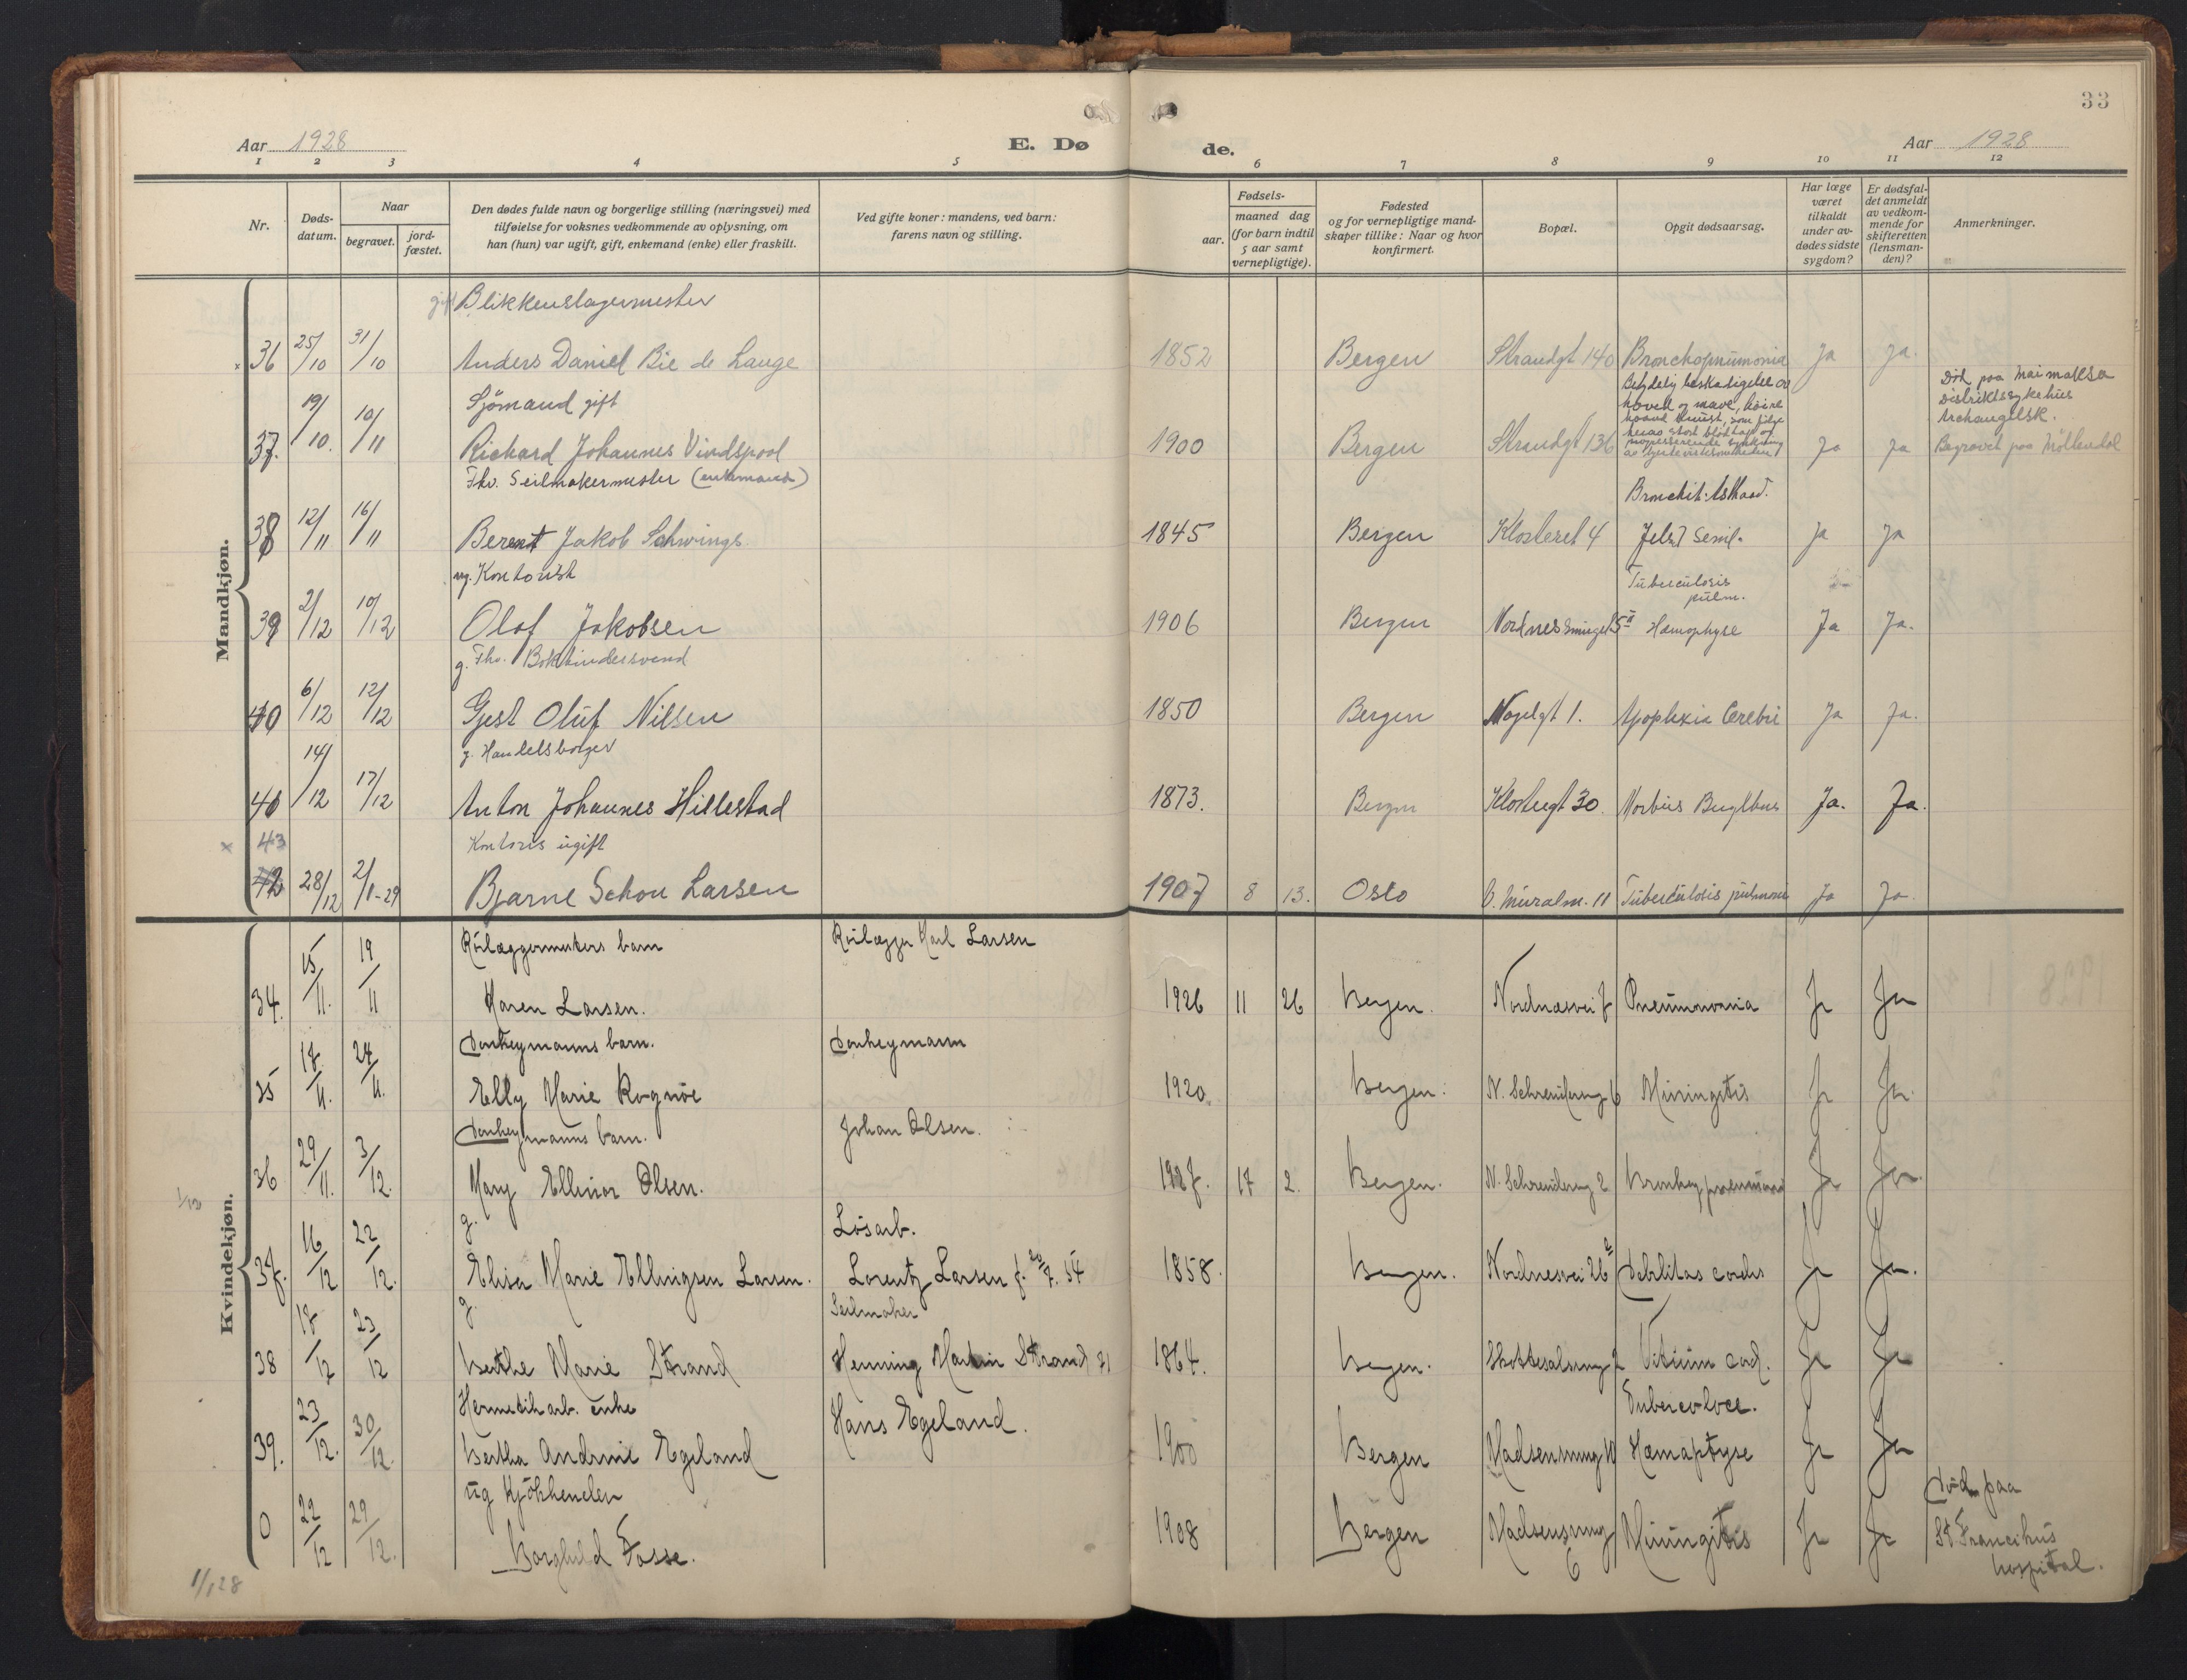 33
Aar 1928
E. Dø
de.
Aar 1928
1 2 3 4 5 6 7 8 9 10 11 12
Nr.
Døds-
datum.
Naar
begravet.
jord-
fæstet.
Den dødes fulde navn og borgerlige stilling (næringsvei) med
tilføielse for voksnes vedkommende av oplysning, om
han (hun) var ugift, gift, enkemand (enke) eller fraskilt.
Ved gifte koner: mandens, ved barn:
farens navn og stilling.
aar.
Fødsels-
maaned dag
(for barn indtil
5 aar samt
vernepligtige).
Fødested
og for vernepligtige mand-
skaper tillike: Naar og hvor
konfirmert.
Bopæl.
Opgit dødsaarsag.
Har læge
været
tilkaldt
under av-
dødes sidste
sygdom?
Er dødsfal-
det anmeldt
av vedkom-
mende for
skifteretten
(lensman-
den)?
Anmerkninger.
Mandkjøn.
gift Blikkenslagermester
36 25/10 31/10 Anders Daniel Bie de Lange 1852 Bergen Strandgt 140 Bronchopnumonia Ja Ja.
Sjömand gift
Betydelig beskadigelse av
hoved og mave, höire
Död paa Maimaksa
Distriktssykehus
Archangelsk.
37. 19/10. 10/11 Richard Johannes Vindspool 1900 Bergen Strandgt 136 Ja Ja Begravet paa Möllendal
Fhv. Seilmakermester (enkemand)
Bronchit.
38 12/11 16/11 Berent Jakob Schwings 1845 Bergen Klosteret 4 Senil. Ja Ja
ug. Kontorist
Tuberculosis
pulm.
39 2/12 10/12 Olaf Jakobsen 1906 Bergen Nordnessmuget 5 II Hæmophyse Ja Ja.
g. Fhv. Bokbindersvend
40 6/12 12/12 Gjest Oluf Nilsen 1850 Bergen Nagelgt 1. Apoplexia Cerebri Ja Ja.
g. Handelsborger
40 14/12 17/12 Anton Johannes Hillestad 1873. Bergen Klostergt 30. Morbus Ja. Ja.
43
Kontoris ugift
42 28/12 2/1-29 Bjarne Schou Larsen 1907 8 13. Oslo C. Muralm. 11 Tuberculosis pulmon Ja Ja.
Kvindekjøn.
Rörlæggermesters barn Rörlægger Karl Larsen
34. 15/11. 19/11 Karen Larsen. 1926 11 26 Bergen. Nordnæsvei 7 Pneumonia Ja Ja
Donkeymanns barn. Donkeymann
35 17/11. 24/11. Elly Marie Rognöe 1920. Bergen. 6 Miningitis Ja Ja.
Donkeymanns barn. Johan Olsen.
36 29/11. 3/12. Mary Ellinor Olsen. 1927. 17 2. Bergen. 2 Ja Ja.
g. Lösarb.
37. 16/12 22/12. Elisa Marie Ellingsen Larsen. Lorentz Larsen f. 20/7. 54 1858. Bergen. Nordnesvei 26 Debilitas cordis Ja Ja.
g. Seilmaker
38 18/12 23/12 Berthe Marie Strand Henning Martin Strand 71 1864. Bergen. Vitium cord. Ja Ja
Hermetik arb. enke Hans Egeland. Tubercolose.
39. 23/12. 30/12. Bertha Andrine Egeland 1900 Bergen Madsensmug 10 Hæmaptyse Ja Ja
ug Kjökkenelev
Död paa
0 22/12 29/12. Borghild Fosse. 1908 Bergen Madsensmug 6 Miningitis Ja Ja St Franciskus
hospital.
1/1 28